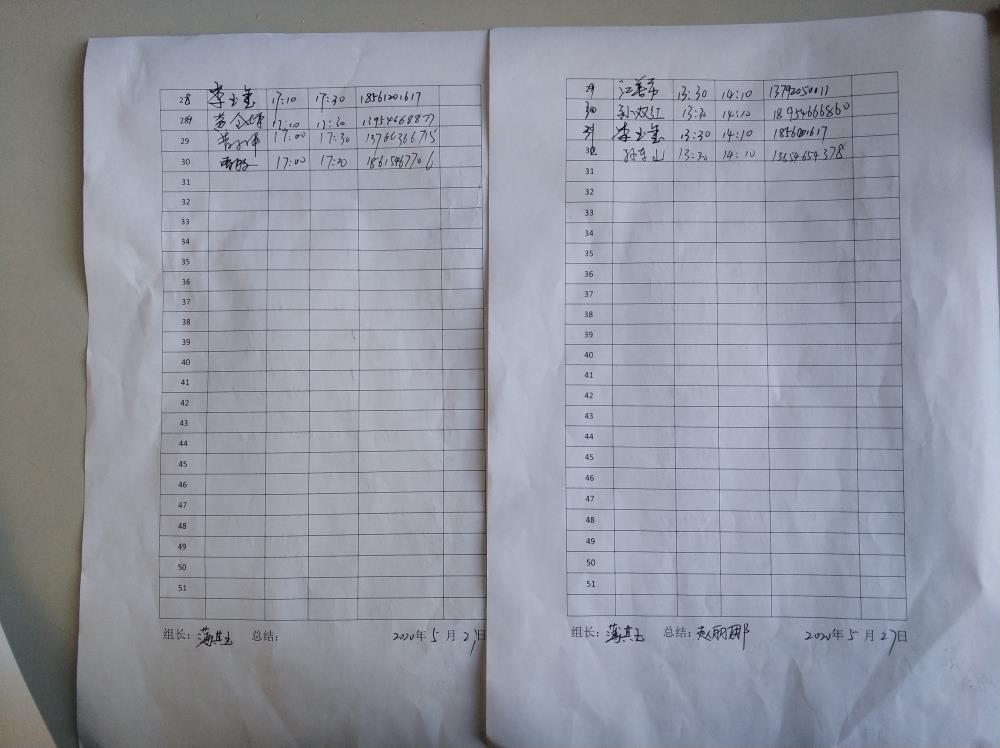 28 李玉金 17:10 17:30 18561201617
289 17:10 17:30 13954668877
29 17:00 17:30 13766366715
30 17:00 17:20 18615467706
31
32
33
34
35
36
37
38
39
40
41
42
43
44
45
46
47
48
49
50
51
组长: 薄其玉 总结: 2020年5月27日
29 江善帝 13:30 14:10 13792050011
30 孙双江 13:30 14:10 18954666860
31 李玉金 13:30 14:10 1856201617
30 孙东山 13:20 14:10 13654654378
31
32
33
34
35
36
37
38
39
40
41
42
43
44
45
46
47
48
49
50
51
组长: 薄其玉 总结: 赵丽娜 2020年5月27日